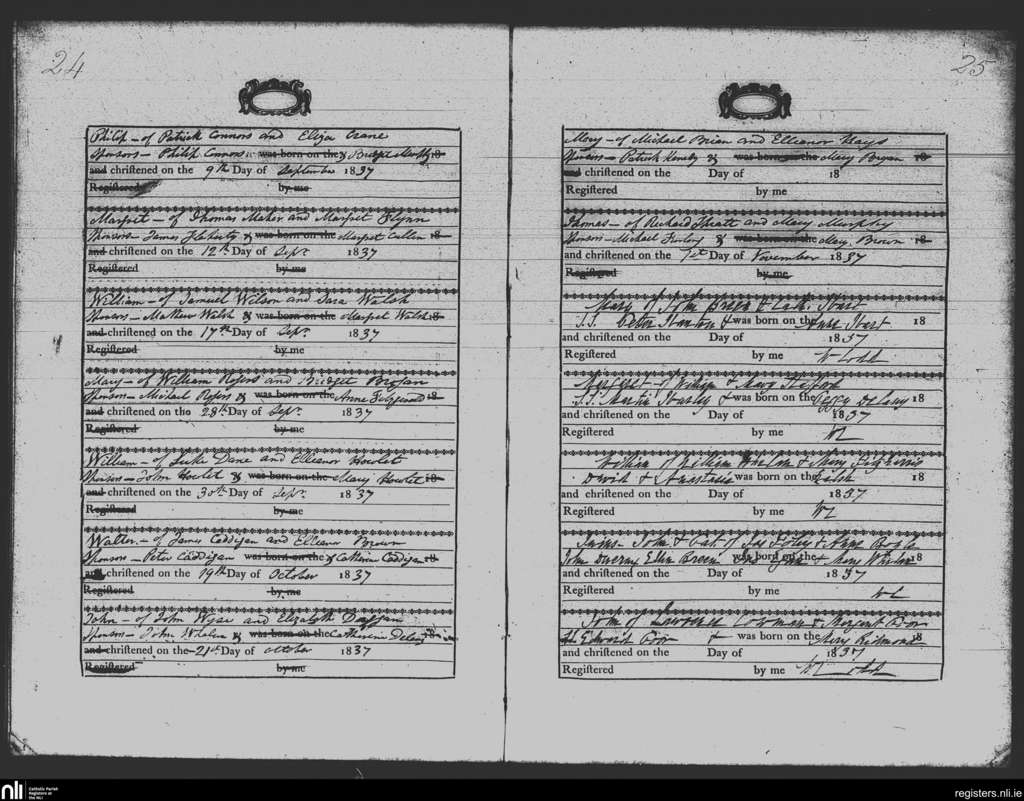 24
Philip - of Patrick Connors and Eliza Crane
Sponsors - Philip Connors was born on the & Bridget Murphy 18
and christened on the 9th Day of September 1837
Registered by me
Margret - of Thomas Maher and Margret Flynn
Sponsors - James Flaherty & was born on the Margret Cullen 18
and christened on the 12th Day of Sepr. 1837
Registered by me
William - of Samuel Wilson and Sara Walsh
Sponsors - Mathew Walsh & was born on the Margret Walsh 18
and christened on the 17th Day of Sepr. 1837
Registered by me
Mary - of William Rogers and Bridget Brogan
Sponsors - Michael Rogers & was born on the Anne Fitzgerald 18
and christened on the 28th Day of Sepr. 1837
Registered by me
William - of Luke Dane and Ellieanor Howlet
Sponsors - John Howlet & was born on the Mary Howlet 18
and christened on the 30th Day of Sepr. 1837
Registered by me
Walter - of James Caddigan and Elleanor Brown
Sponsors - Peter Caddigan was born on the & Catherine Caddigan 18
and christened on the 19th Day of October 1837
Registered by me
John - of John Wyse and Elizabeth
Sponsors - John Whelan & was born on the Catherine Delany 18
and christened on the 21st Day of October 1837
Registered by me
25
Mary - of Michael Brian and Ellieanor Hays
Sponsors - Patrick & was born on the Mary Bryan 18
and christened on the Day of 18
Registered by me
Thomas - of Richard and Mary Murphy
Sponsors - Michael Furlong & was born on the Mary Brown 18
and christened on the 1st Day of November 1837
Registered by me
Mary of John &
S.S. Peter & was born on the 18
and christened on the Day of 1837
Registered by me
Margaret of William & Mary
S.S. Martin & was born on the Peggy Delany 18
and christened on the Day of 1837
Registered by me
William of William Whelan & Mary
David & Anastasia was born on the Walsh 18
and christened on the Day of 1837
Registered by me
James - John &
John Ellen Breen was born on the & Mary Whelan 18
and christened on the Day of 1837
Registered by me
John of Lawrence & Margaret
Edward & was born on the Mary Redmond 18
and christened on the Day of 1837
Registered by me
nli
Catholic Parish
Registers at
the NLI
registers.nli.ie